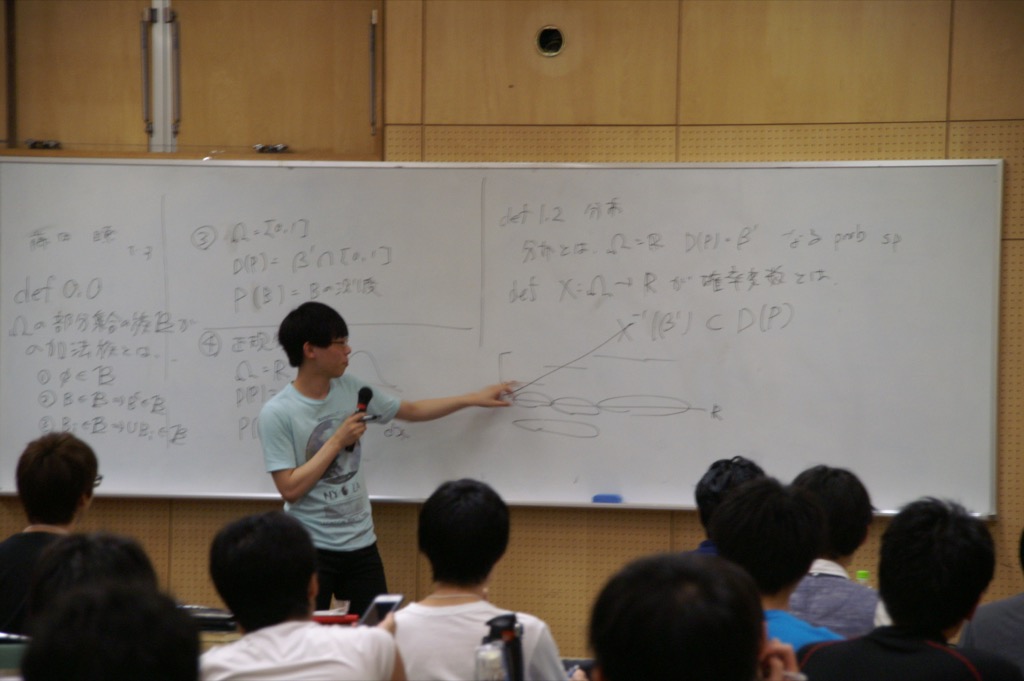 def 0.0
Ωの部分集合の族Bが
の加法族とは、
① φ∈B
② B∈B⇒Bᶜ∈B
③ Bᵢ∈B⇒∪Bᵢ∈B
③ Ω=[0,1]
D(P)=β'∩[0,1]
P(B)=Bの測度
④ 正規
Ω=R
D(P)=
P(
dx
def 1.2 分布
分布とは、Ω=R D(P)=β' なる prob sp
def X:Ω→R が確率変数とは、
X⁻¹(β')⊂D(P)
R